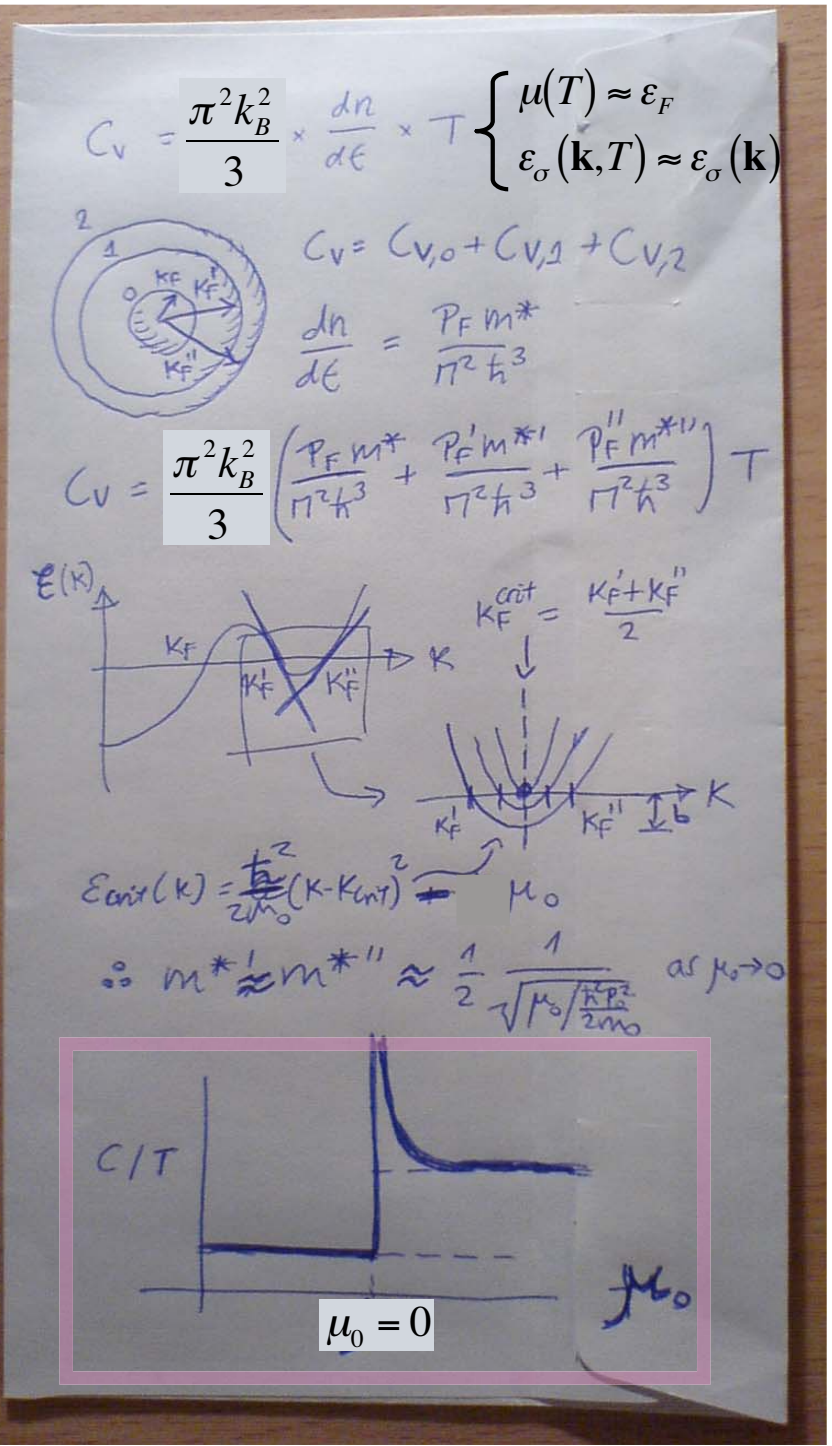 C_V = π²k_B²/3 × dn/dε × T { μ(T) ≈ ε_F
ε_σ(k,T) ≈ ε_σ(k)
2
1
0
K_F K_F'
K_F''
C_V = C_V,0 + C_V,1 + C_V,2
dn/dε = P_F m*/π²ħ³
C_V = π²k_B²/3 (P_F m*/π²ħ³ + P_F' m*'/π²ħ³ + P_F'' m*''/π²ħ³) T
ε(K)
K_F
K_F' K_F''
K
K_F^crit = K_F' + K_F''/2
K_F' K_F'' b
K
ε_crit(K) = ħ²/2m₀ (K-K_crit)² - μ₀
∴ m*' ≈ m*'' ≈ 1/2 1/√(μ₀/(ħ²P₀²/2m₀)) as μ₀→0
C/T
μ₀
μ₀ = 0